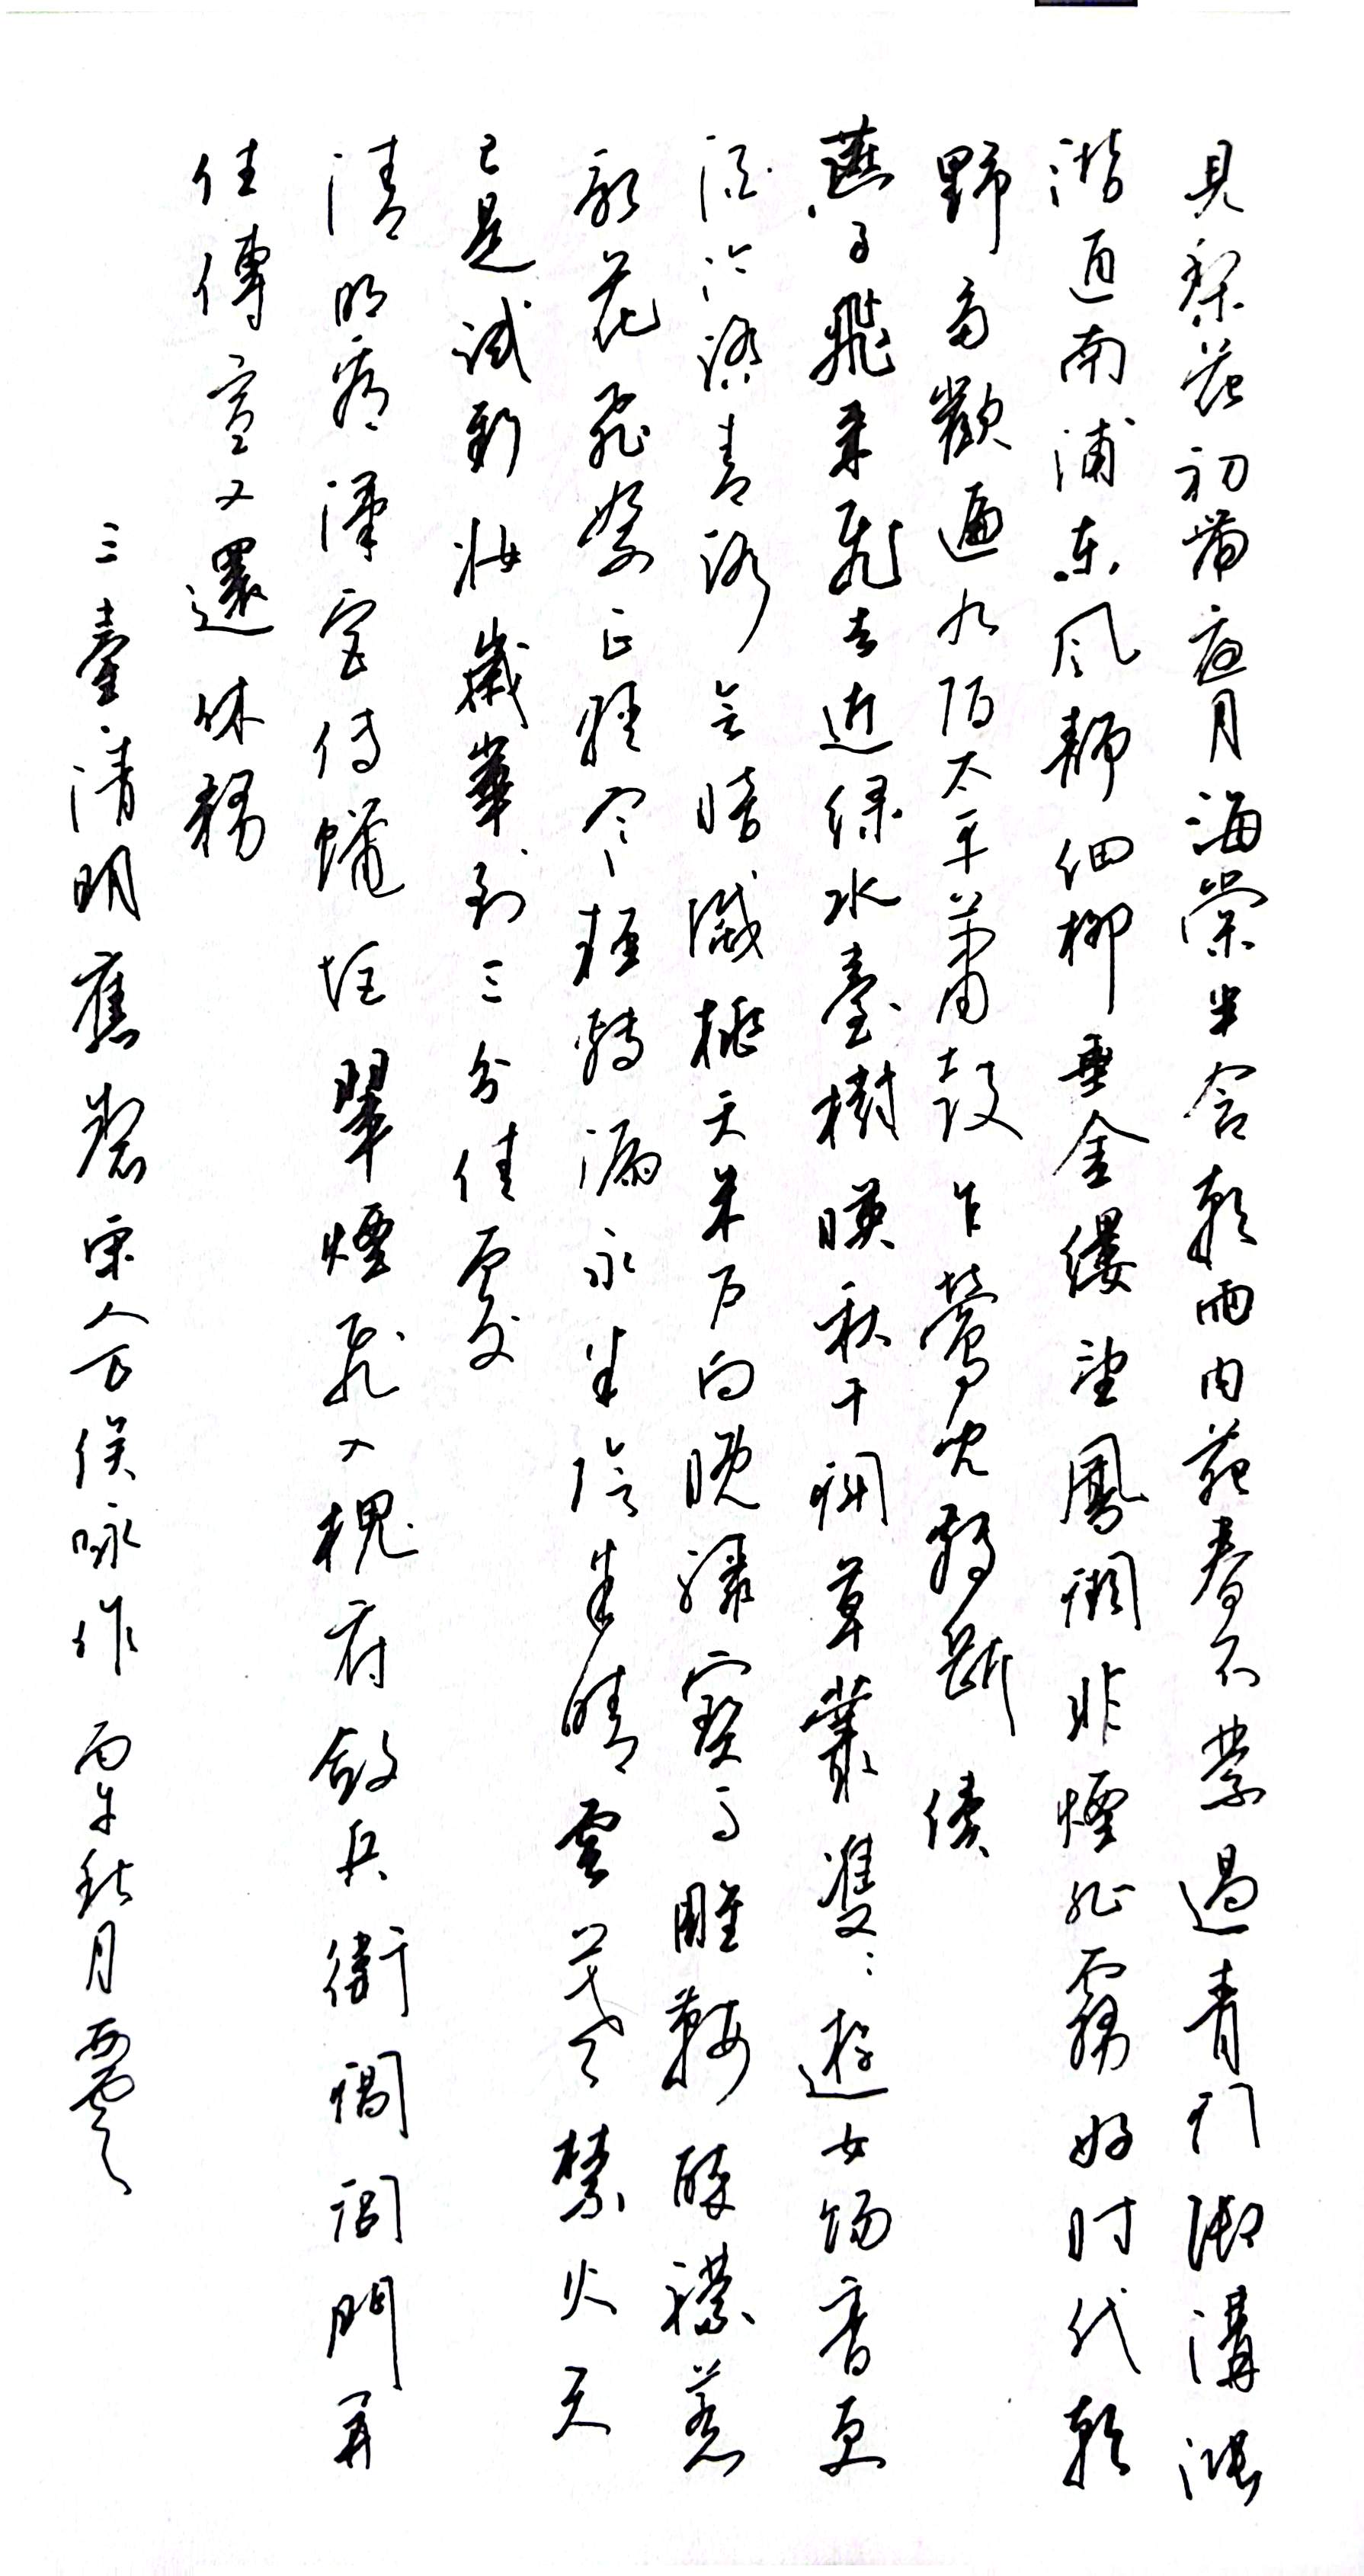 見梨花初帶夜月海棠半含朝雨內苑春不禁過青門御溝漲
潛通南浦東風靜細柳垂金縷望鳳闕非煙非霧好时代朝
野多歡遍九陌太平簫鼓乍鶯兒百囀斷續
燕子飛來飛去近綠水臺榭映秋千鬥草聚雙雙遊女餳香更
酒冷踏青路會暗識夭桃朱户向晚驟寶馬雕鞍醉襟惹
亂花飛絮正輕寒輕暖漏永半陰半晴雲暮禁火天
已是試新妝歲華到三分佳處
清明看漢宮傳蠟炬翠煙飛入槐府斂兵衛閶闔門開
住傳宣又還休務
三臺·清明應製 宋人万俟咏作 丙午秋月